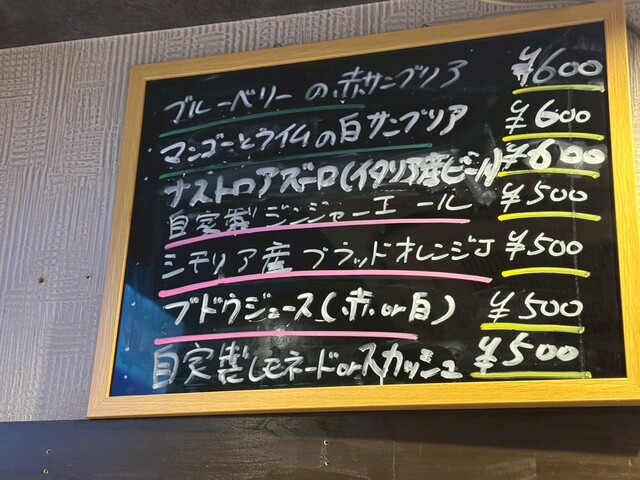 ブルーベリーの赤サングリア ¥600
マンゴーとライムの白サングリア ¥600
ナストロアズーロ(イタリア産ビール) ¥600
自家製ジンジャーエール ¥500
シチリア産ブラッドオレンジJ ¥500
ブドウジュース(赤or白) ¥500
自家製レモネードorスカッシュ ¥500